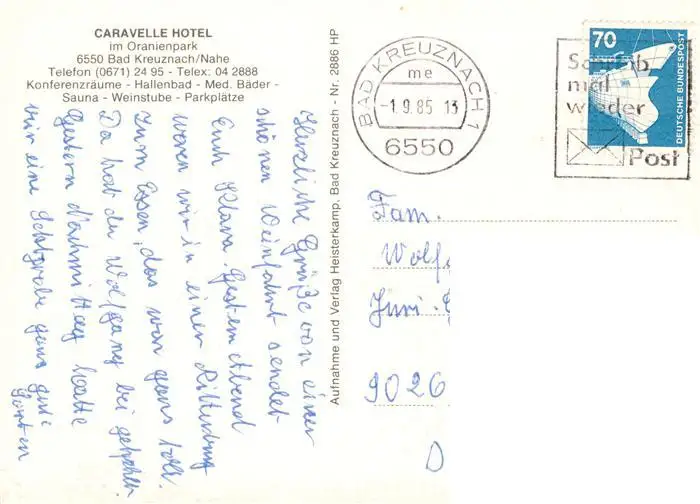 CARAVELLE HOTEL
im Oranienpark
6550 Bad Kreuznach/Nahe
Telefon (0671) 24 95 - Telex: 04 2888
Konferenzräume - Hallenbad - Med. Bäder -
Sauna - Weinstube - Parkplätze
Herzliche Grüße von einer
schönen Weinfahrt sendet
Euch Klara. Gestern Abend
waren wir in einer Ritterburg
zum Essen, das war ganz toll.
Da hat der Wolfgang bei
Gestern Nachmittag hatte
wir eine ganz gute
Aufnahme und Verlag Heisterkamp, Bad Kreuznach - Nr. 2886 HP
BAD KREUZNACH 1
me
-1.9.85 13
6550
70
DEUTSCHE BUNDESPOST
Schreib
mal
wieder
Post
Fam.
Wolf
9026
D